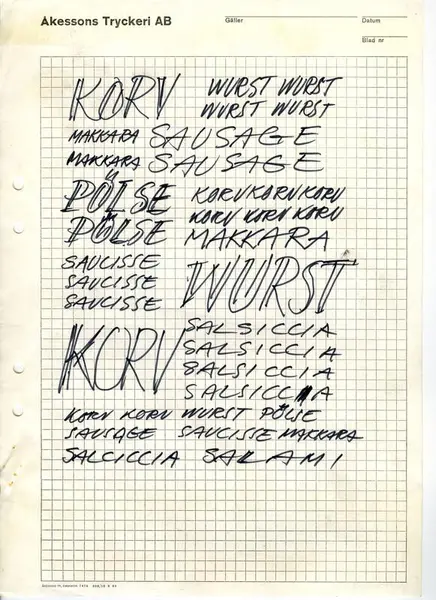 Åkessons Tryckeri AB
Gäller
Datum
Blad nr
KORV WURST WURST
WURST WURST
MAKKARA SAUSAGE
MAKKARA SAUSAGE
PÖLSE KORV KORV KORV
KORV KORV KORV
PÖLSE MAKKARA
SAUCISSE WURST
SAUCISSE
SAUCISSE
KORV SALSICCIA
SALSICCIA
SALSICCIA
SALSICCIA
KORV KORV WURST PÖLSE
SAUSAGE SAUCISSE MAKKARA
SALCICCIA SALAMI